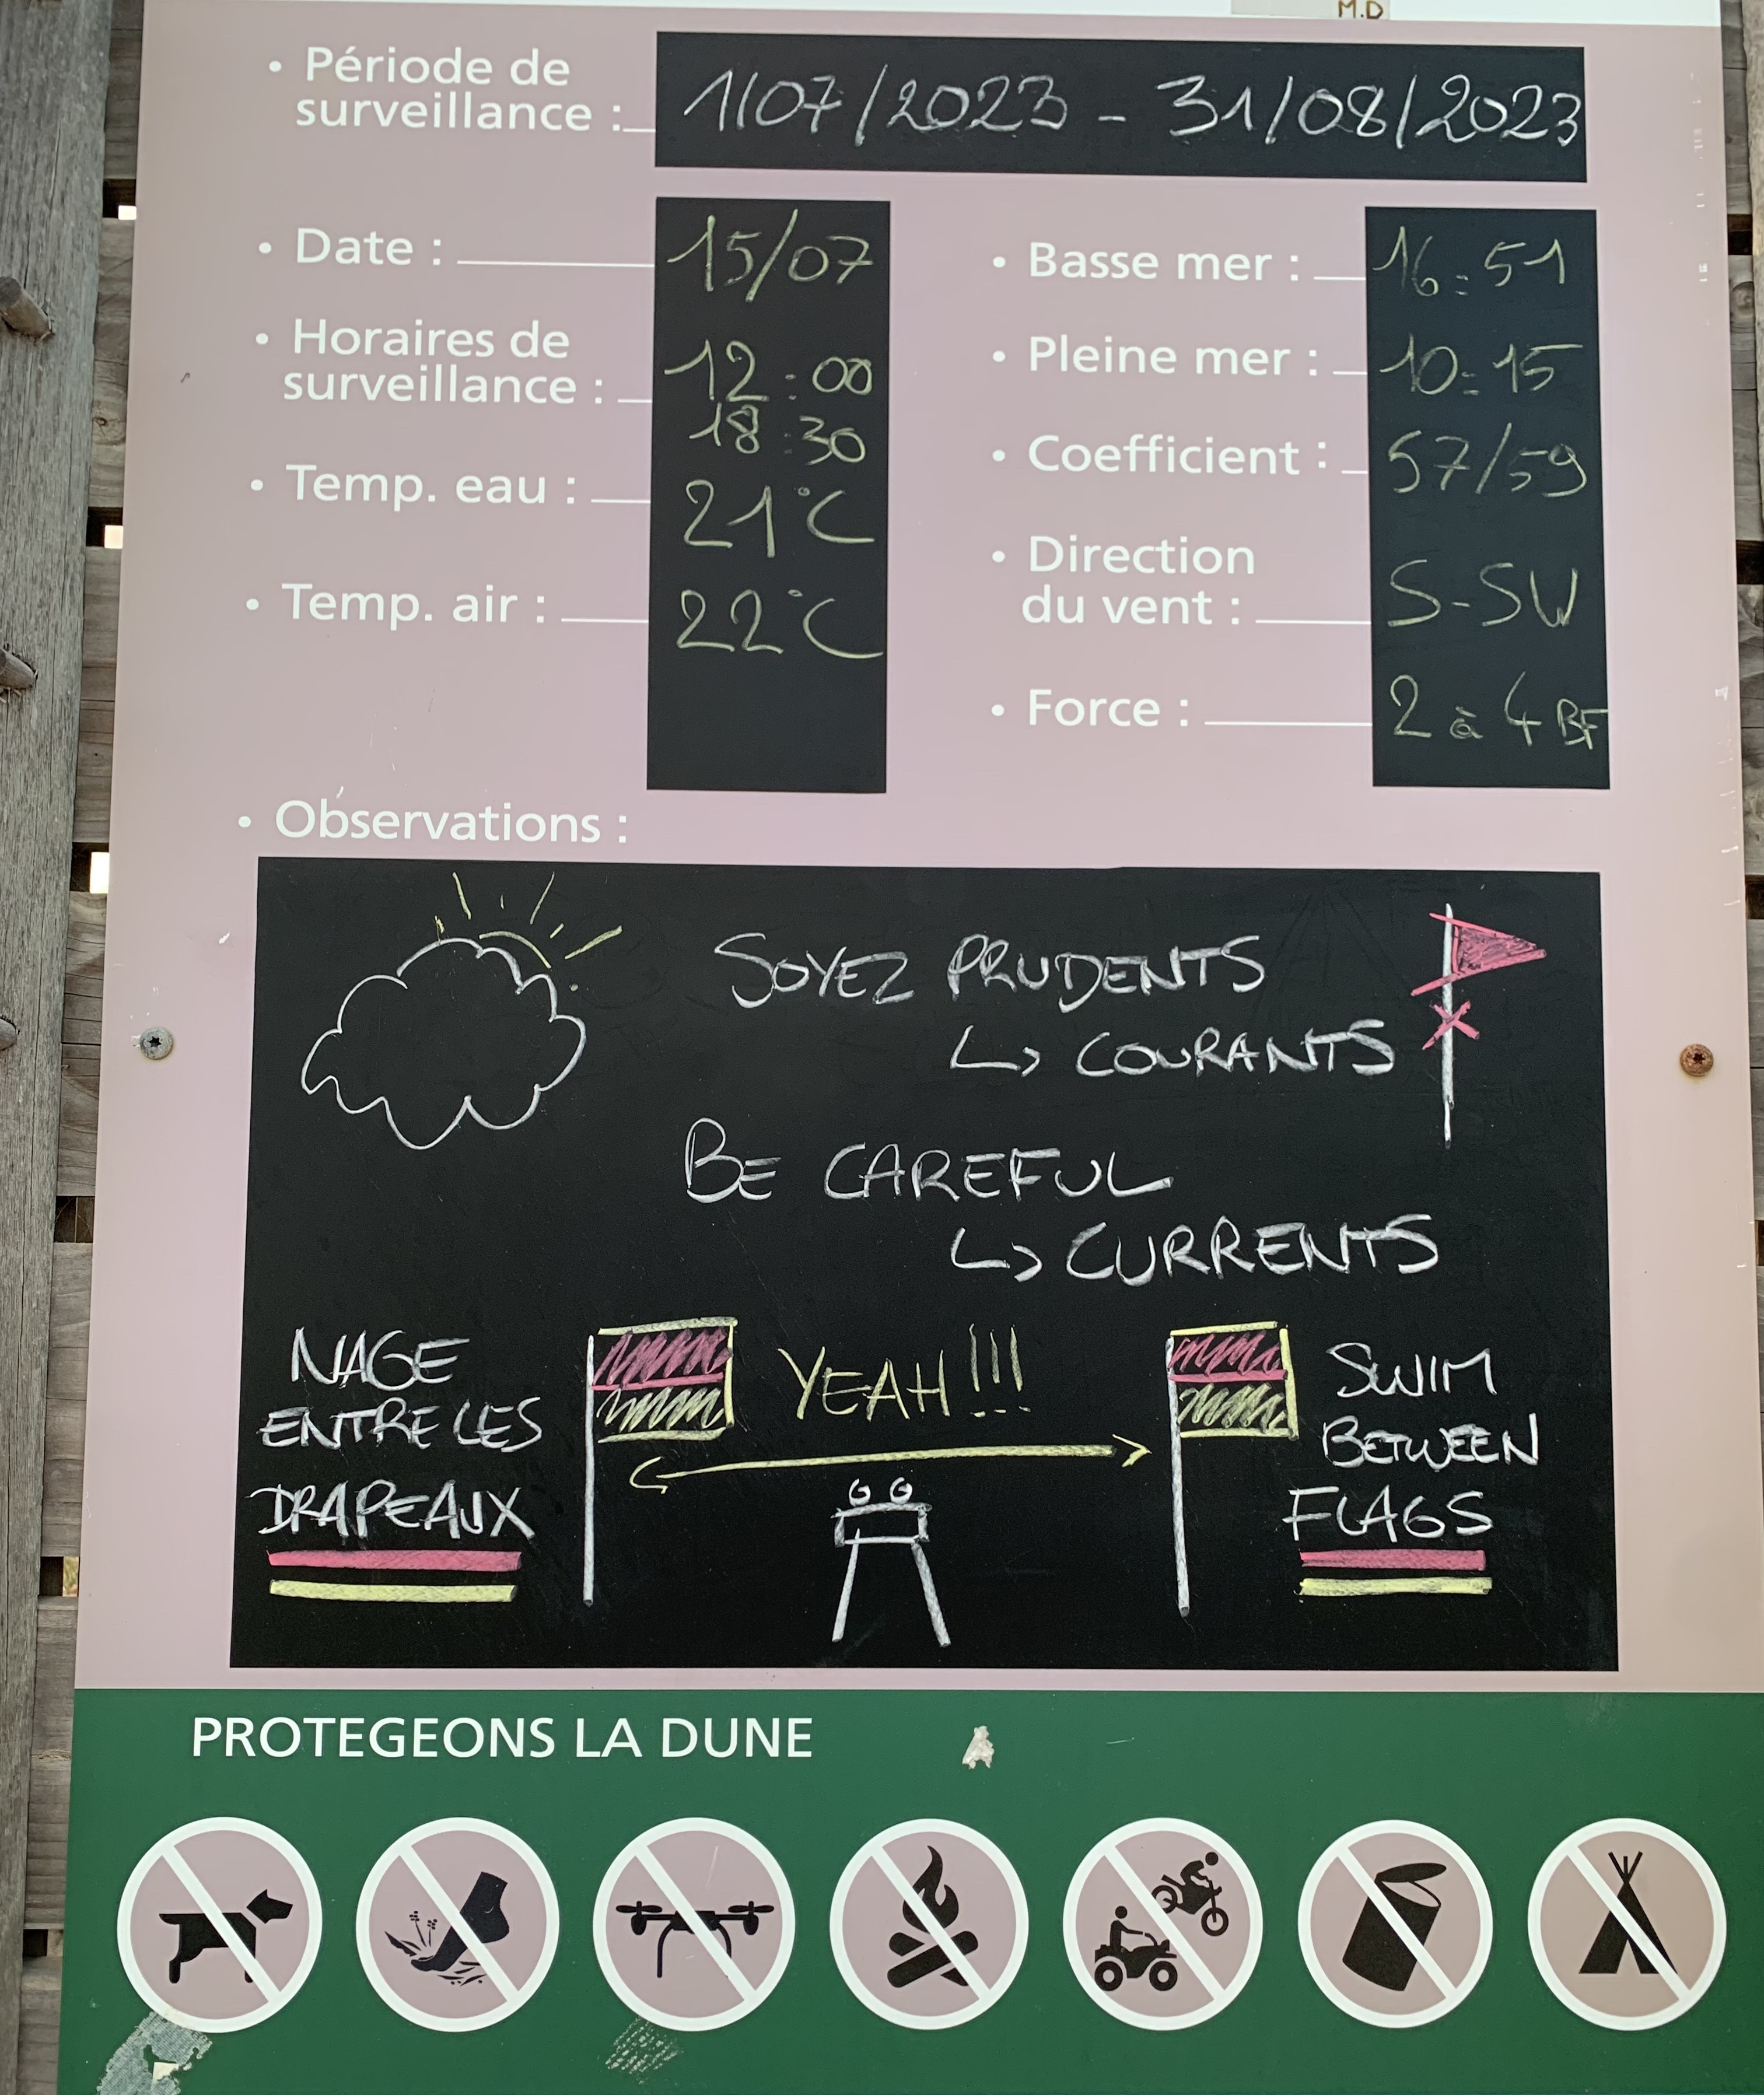 M.D
• Période de
surveillance :
1/07/2023 - 31/08/2023
• Date : 15/07
• Horaires de
surveillance : 12:00
18:30
• Temp. eau : 21°C
• Temp. air : 22°C
• Basse mer : 16:51
• Pleine mer : 10:15
• Coefficient : 57/59
• Direction
du vent : S-SW
• Force : 2 à 4 BF
• Observations :
SOYEZ PRUDENTS
↳ COURANTS
BE CAREFUL
↳ CURRENTS
NAGE
ENTRE LES
DRAPEAUX
YEAH !!!
SWIM
BETWEEN
FLAGS
PROTEGEONS LA DUNE